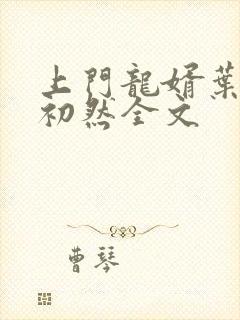 上門龍婿葉
初然全文
曹琴